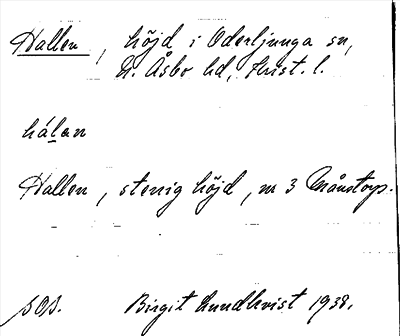 Hallen, höjd i Oderljunga sn,
N. Åsbo hd, Krist. l.
hálan
Hallen, stenig höjd, nr 3 Månstorp.
sOs. Birgit Lundkvist 1938.